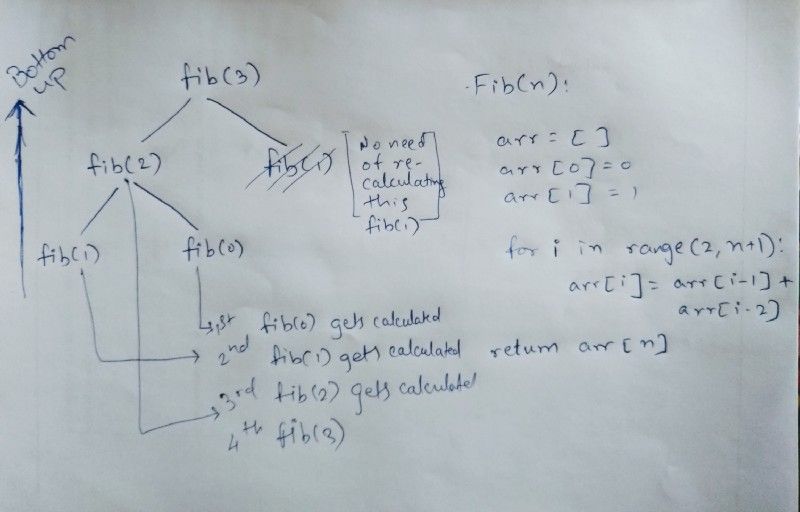 Bottom
up
fib(3)
fib(2)
fib(1)
No need
of re-
calculating
this
fib(1)
fib(1)
fib(0)
1st fib(0) gets calculated
2nd fib(1) gets calculated
3rd fib(2) gets calculated
4th fib(3)
Fib(n):
arr = [ ]
arr[0]=0
arr[1] = 1
for i in range(2, n+1):
arr[i] = arr[i-1] +
arr[i-2]
return arr[n]